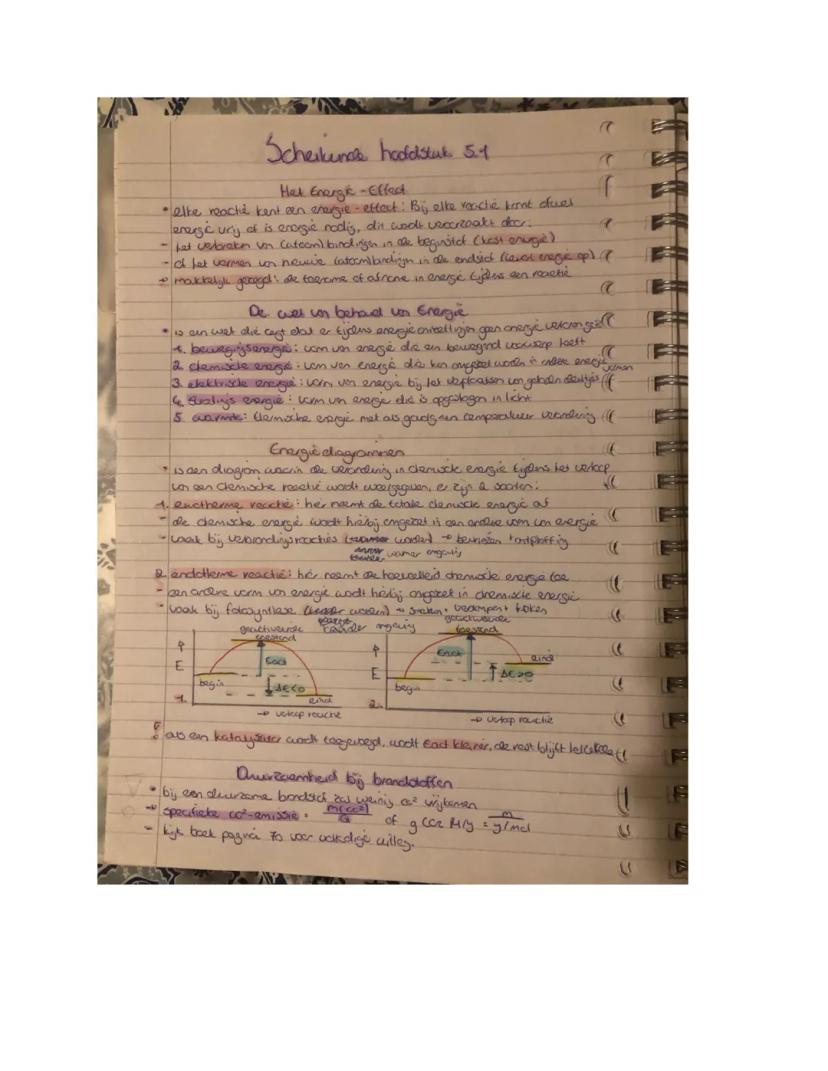 Scheikunde hoofdstuk 5.1
Het Energie-Effect
• elke reactie kent een energie-effect: Bij elke reactie komt ofwel
energie vrij of is energie nodig, dit wordt veroorzaakt door:
- het verbreken van (atoom)bindingen in de beginstof (kost energie)
- of het vormen van nieuwe (atoom)bindingen in de eindstof (levert energie op)
→ makkelijk gezegd: de toename of afname in energie tijdens een reactie
De wet van behoud van Energie
• is een wet die zegt dat er tijdens energie omzettingen geen energie verloren gaat
1. bewegingsenergie: vorm van energie die een bewegend voorwerp heeft
2. chemische energie: vorm van energie die kan omgezet worden in andere energie vormen
3. elektrische energie: vorm van energie bij het verplaatsen van geladen deeltjes
4. Stralings energie: vorm van energie die is opgeslagen in licht
5. warmte: thermische energie met als gevolg een temperatuur verandering
Energiediagrammen
• is een diagram waarin de verandering in chemische energie tijdens het verloop
van een chemische reactie wordt weergegeven, er zijn 2 soorten:
1. exotherme reactie: hier neemt de totale chemische energie af
- de chemische energie wordt hierbij omgezet in een andere vorm van energie
- vaak bij verbrandingsreacties (warmer worden) → + ontploffing
warmer omgeving
2. endotherme reactie: hier neemt de hoeveelheid chemische energie toe
- een andere vorm van energie wordt hierbij omgezet in chemische energie
- vaak bij fotosynthese (kouder worden) → smelten + verdampen + koken
kouder omgeving
geactiveerde toestand
E
Eact
begin
ΔE<0
eind
1.
→ verloop reactie
geactiveerde toestand
E
Eact
eind
ΔE>0
begin
2.
→ verloop reactie
! als een katalysator wordt toegevoegd, wordt Eact kleiner, de rest blijft hetzelfde
Duurzaamheid bij brandstoffen
• bij een duurzame brandstof zal weinig co² vrijkomen
→ specifieke co²-emissie = m(co²) of g CO2 M/y = m
g/mol
- kijk boek pagina 70 voor volledige uitleg.